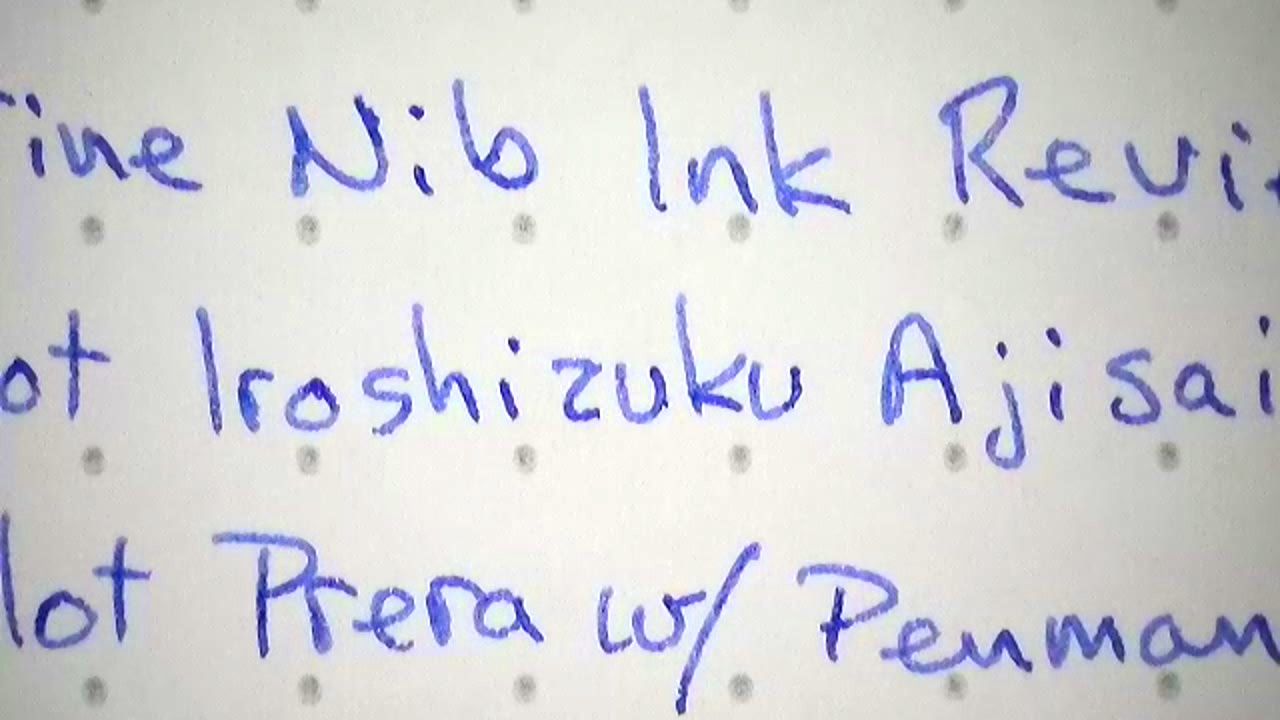 ine Nib Ink Revi
ot Iroshizuku Ajisai
lot Prera w/ Penman